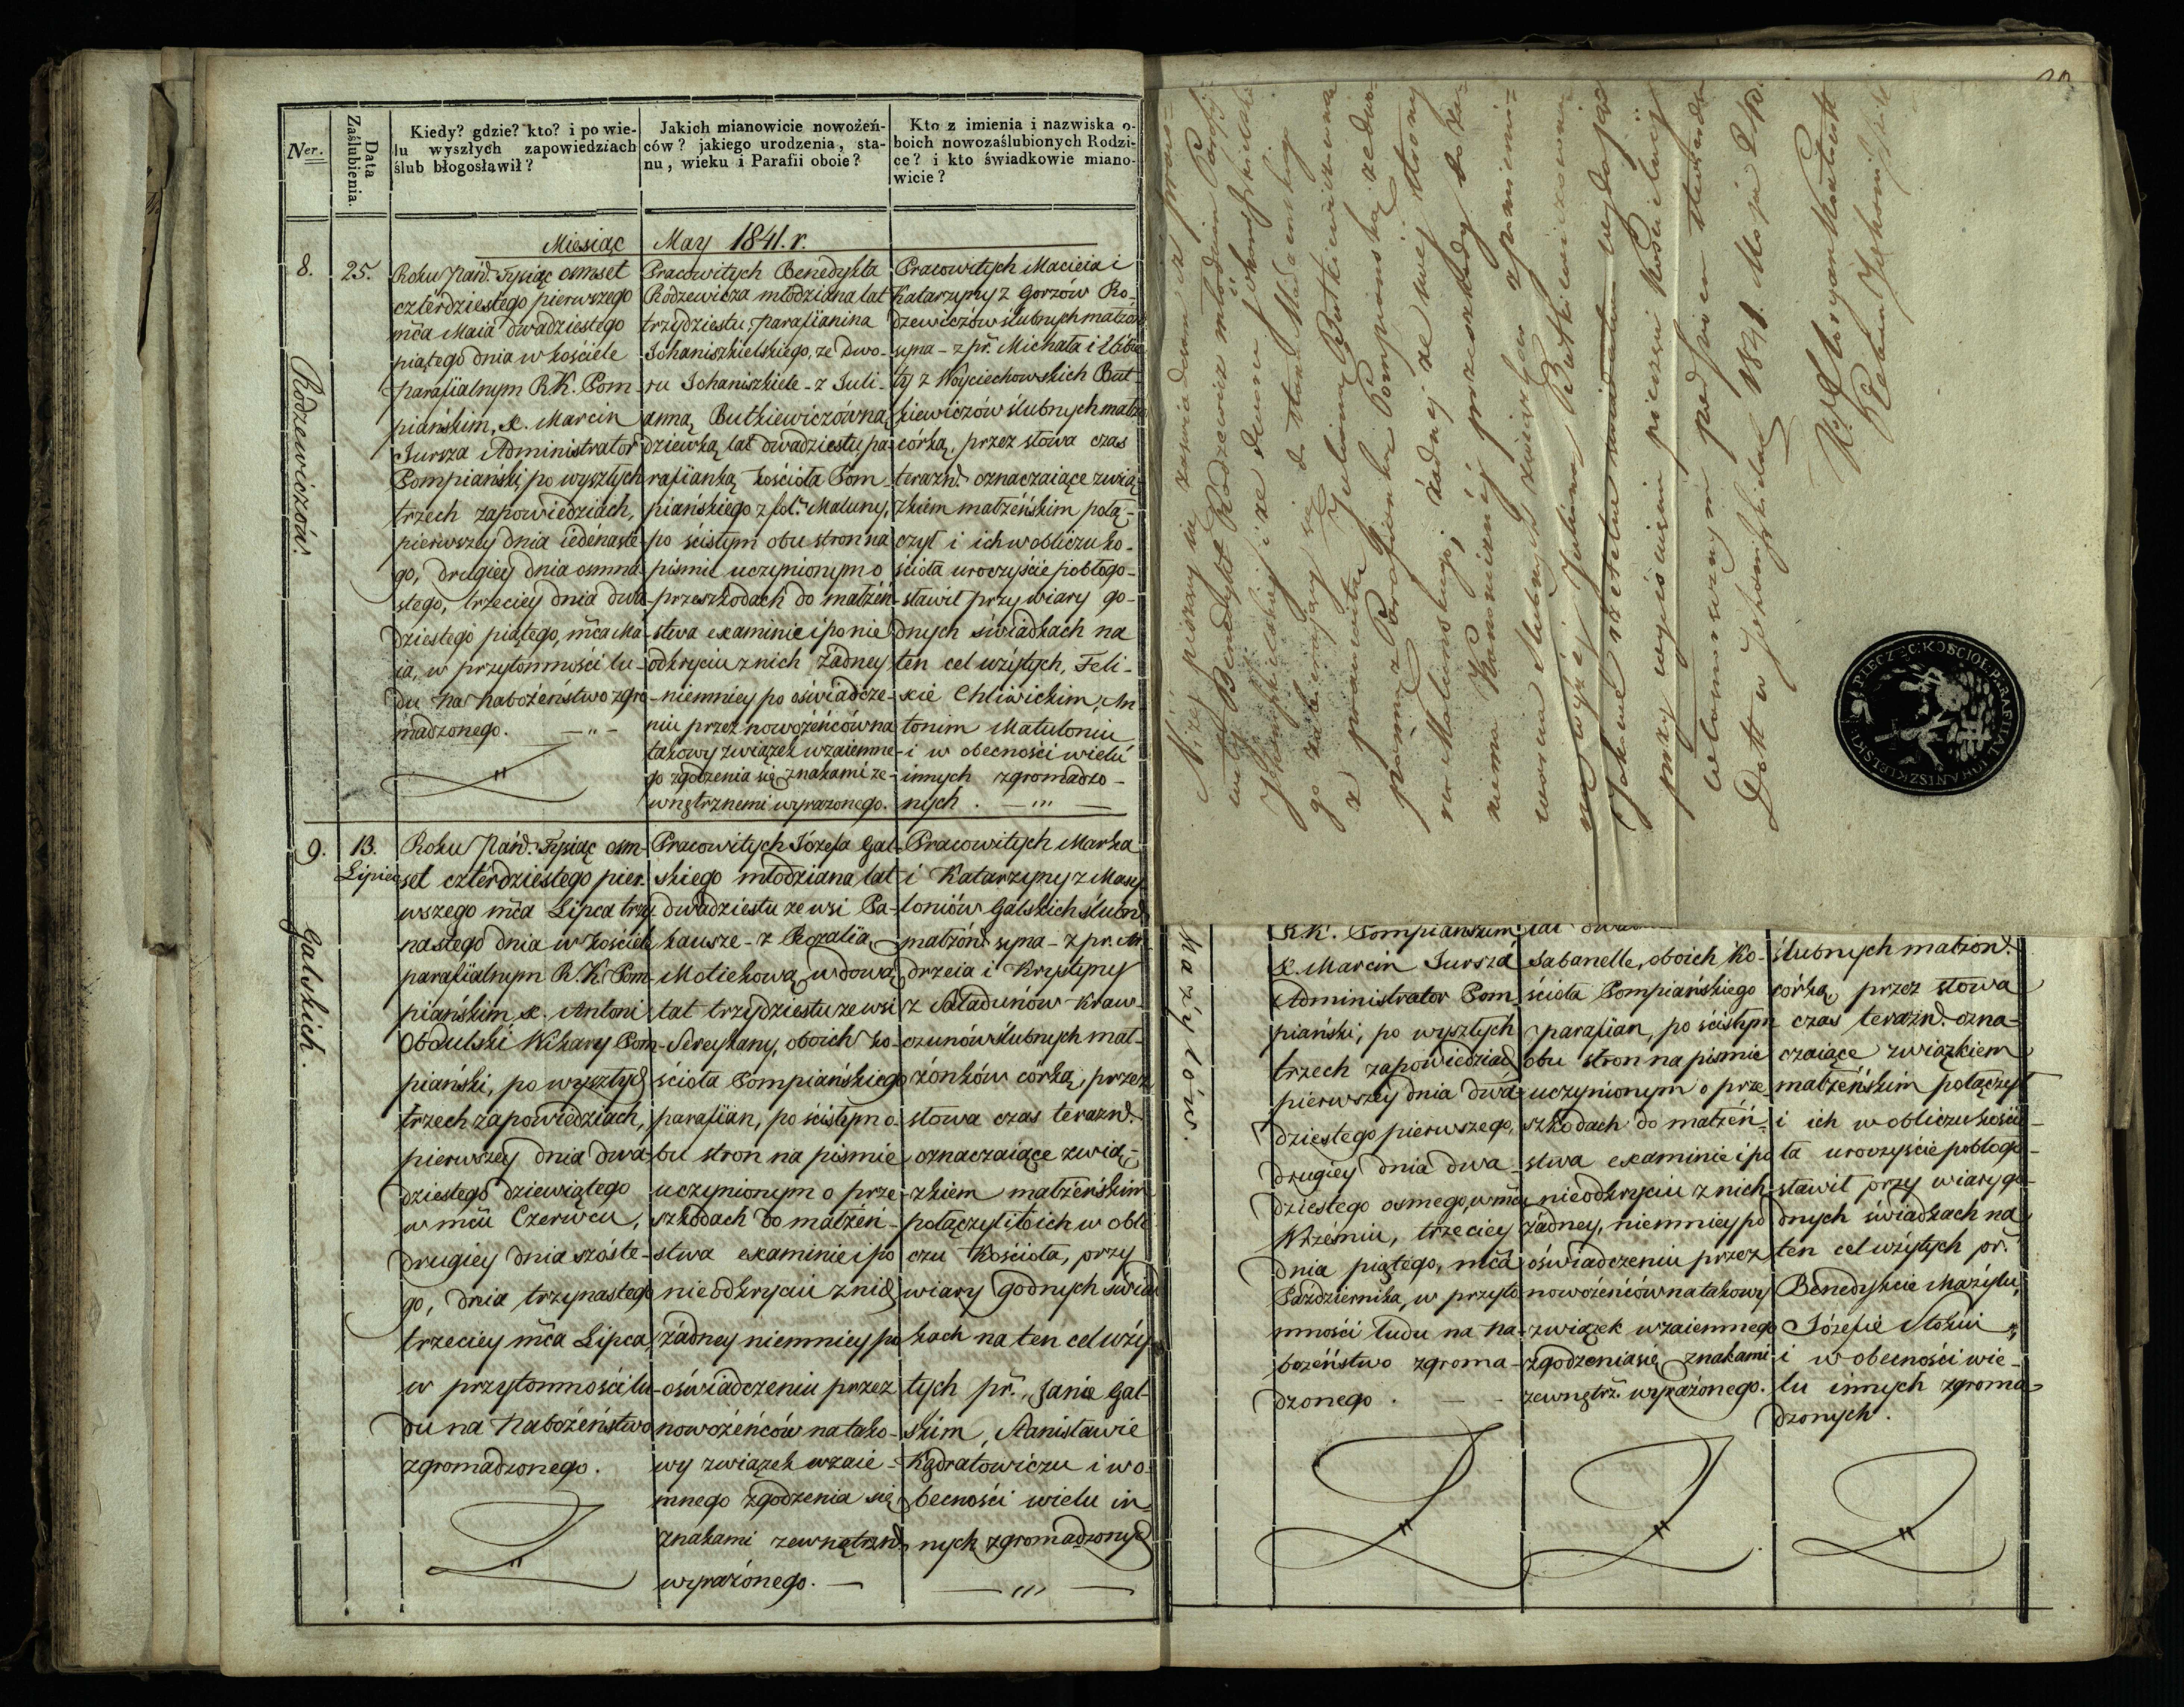 Ner.
Data Zaślubienia.
Kiedy? gdzie? kto? i po wie-
lu wyszłych zapowiedziach
ślub błogosławił?
Jakich mianowicie nowożeń-
ców? jakiego urodzenia, sta-
nu, wieku i Parafii oboie?
Kto z imienia i nazwiska o-
boich nowozaślubionych Rodzi-
ce? i kto świadkowie miano-
wicie?
Miesiąc May 1841. r.
8.
25.
Rodzewiczów.
Roku Pańd. Tysiąc osmset
czterdziestego pierwszego
mča Maia dwadziestego
piątego dnia w kościele
parafiialnym R.K. Pom-
piańskim, X. Marcin
Jursza Administrator
Pompiański, po wyszłych
trzech zapowiedziach,
pierwszey dnia iedénaste-
go, drugiey dnia osmna-
stego, trzeciey dnia dwa-
dziestego piątego, mča Ma-
ia, w przytomności lu-
du na nabożeństwo zgro-
madzonego.
Pracowitych Benedykta
Rodzewicza młodziana lat
trzydziestu, parafiianina
Johaniszkielskiego, ze dwo-
ru Johaniszkiele - z Juli-
anną Butkiewiczówną,
dziewką, lat dwadziestu, pa-
rafiianką kościoła Pom-
piańskiego z fol. Maluny,
po ścisłym obu stron na
pismie uczynionym o
przeszkodach do małżeń-
stwa examinie i po nie
odkryciu z nich żadney
niemniey po oświadcze-
niu przez nowożeńców na
takowy związek wzaiemne-
go zgodzenia się znakami ze-
wnętrznemi wyrażonego.
Pracowitych Macieia i
Katarzyny z Gorzów Ro-
dzewiczów ślubnych małżón
syna - z pr. Michała i Elżbie
ty z Woyciechowskich But-
kiewiczów ślubnych małżo
córką, przez słowa czas
teraznd. oznaczaiące zwią-
zkiem małżeńskim połą-
czył i ich w obliczu ko-
ścioła uroczyście pobłogo-
sławił przy wiary go-
dnych świadkach na
ten cel wziętych, Feli-
xie Chliwickim, An-
tonim Matuloniu
i w obecności wielu
innych zgromadzo-
nych.
9.
13.
Lipiec
Galskich.
Roku Pańd. Tysiąc osm-
set czterdziestego pier-
wszego mča Lipca trzy-
nastego dnia w kościele
parafiialnym R.K. Pom-
piańskim, X. Antoni
Obdulski Wikary Pom-
piański, po wyszłych
trzech zapowiedziach,
pierwszey dnia dwa-
dziestego dziewiątego
w mču Czerwcu,
drugiey dnia szóste-
go, dnia trzynastego
trzeciey mča Lipca,
w przytomności lu-
du na nabożeństwo
zgromadzonego.
Pracowitych Józefa Gal-
skiego młodziana, lat
dwudziestu ze wsi Pa-
kausze - z Rozalią
Motiekową, wdową
lat trzydziestu ze wsi
Sereykany, oboich ko-
ścioła Pompiańskiego
parafiian, po ścisłym o-
bu stron na pismie
uczynionym o prze-
szkodach do małżeń-
stwa examinie i po
nieodkryciu z nich
żadney niemniey po
oświadczeniu przez
nowożeńców na tako-
wy związek wzaie-
mnego zgodzenia się,
znakami zewnętrznd.
wyrażónego.
Pracowitych Marka
i Katarzyny z Masy
loniów Galskich ślubnd.
małżónd. syna - z pr. An
drzeia i Krystyny
z Sladunów Kraw-
czunów ślubnych mał-
żónków córką, przez
słowa czas teraznd.
oznaczaiące zwią-
zkiem małżeńskim
połączył i ich w obli
czu kościoła, przy
wiary godnych świad
kach na ten cel wzię
tych pr. Janie Gal-
skim, Stanisławie
Kądratowiczu i wo
becności wielu in
nych zgromadzonych
Niżej pisany zaświadczam iż praco-
wity Benedykt Rodzewicz młodzian Parafij
Johaniszkielskiej i ze dworu Johaniszkielskie
go zabierający się do stanu Małżeńskiego
z pracowitą Julianną Butkiewiczówną
panną Parafianką Pompianską ze dwo-
ru Malunskiego; żadnej ze swej strony
niema Kanonicznej przeszkody do za-
warcia ślubnych związków z pomienio-
ną wyżej Julianną Butkiewiczówną
Jakowe rzetelne świadectwo wydaje
przy wyciśnieniu pieczęci Kościelnej
własnoręcznym podpisem stwierdzam
Datt w Johaniszkielach 1841. Maja 24 D.
PIECZĘĆ KOSCIOŁ: PARAFIAL: IOHANISZKIELSKI
Mażylów.
R.K. Pompiańskim
X. Marcin Jursza
Administrator Pom-
piański, po wyszłych
trzech zapowiedziach
pierwszey dnia dwa-
dziestego pierwszego,
drugiey dnia dwa-
dziestego osmego, w mču
Wrześniu, trzeciey
dnia piątego, mča
Października, w przyto
mności ludu na na-
bożeństwo zgroma-
dzonego.
Sabanelle, oboich ko-
ścioła Pompiańskiego
parafiian, po ścisłym
obu stron na pismie
uczynionym o prze-
szkodach do małżeń-
stwa examinie i po
nieodkryciu z nich
żadney, niemniey po
oświadczeniu przez
nowożeńców na takowy
związek wzaiemnego
zgodzenia się znakami
zewnętrz. wyrażonego.
ślubnych małżond.
córką, przez słowa
czas teraznd. ozna-
czaiące związkiem
małżeńskim połączył
i ich w obliczu kościo
ła uroczyście pobłogo-
sławił przy wiary go-
dnych świadkach na
ten cel wziętych pr.
Benedykcie Mażylu,
Józefie Stokiu
i w obecności wie-
lu innych zgroma-
dzonych.